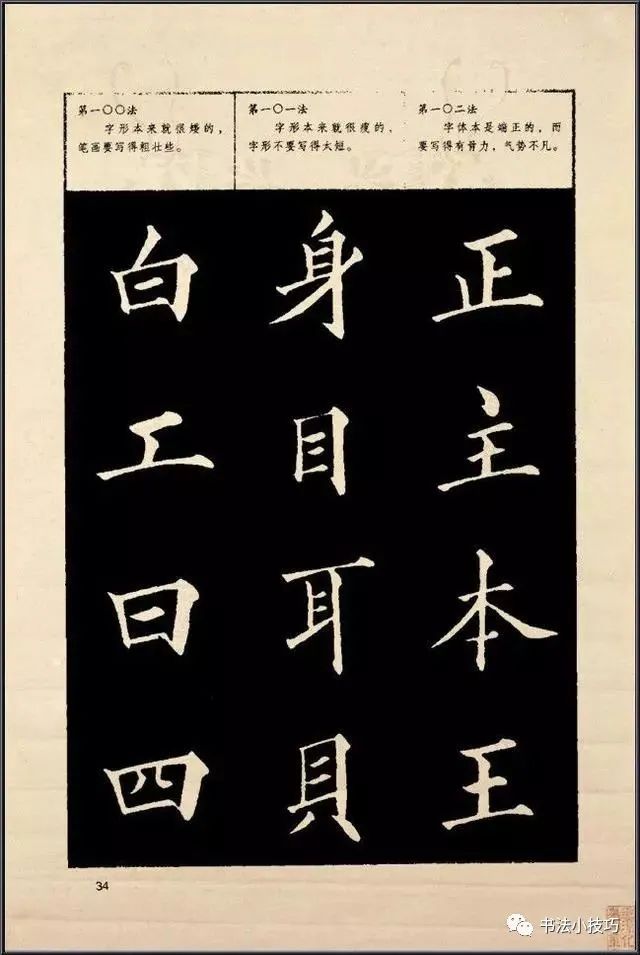 第一〇〇法
字形本来就很矮的，
笔画要写得粗壮些。
第一〇一法
字形本来就很瘦的，
字形不要写得太短。
第一〇二法
字体本是端正的，而
要写得有骨力，气势不凡。
白
工
曰
四
身
目
耳
貝
正
主
本
王
34
书法小技巧